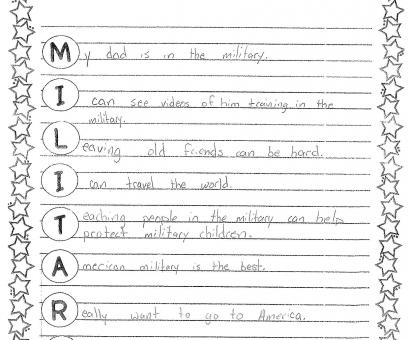 My dad is in the military.
I can see videos of him training in the
military.
Leaving old friends can be hard.
I can travel the world.
Teaching people in the military can help
protect military children.
American military is the best.
Really want to go to America.